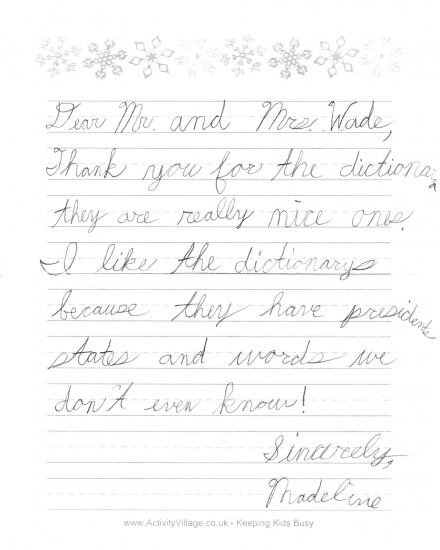 Dear Mr. and Mrs. Wade,
Thank you for the dictionarys
they are really nice ones.
I like the dictionarys
because they have presidents
states and words we
don't even know!
Sincerely,
Madeline
www.ActivityVillage.co.uk - Keeping Kids Busy